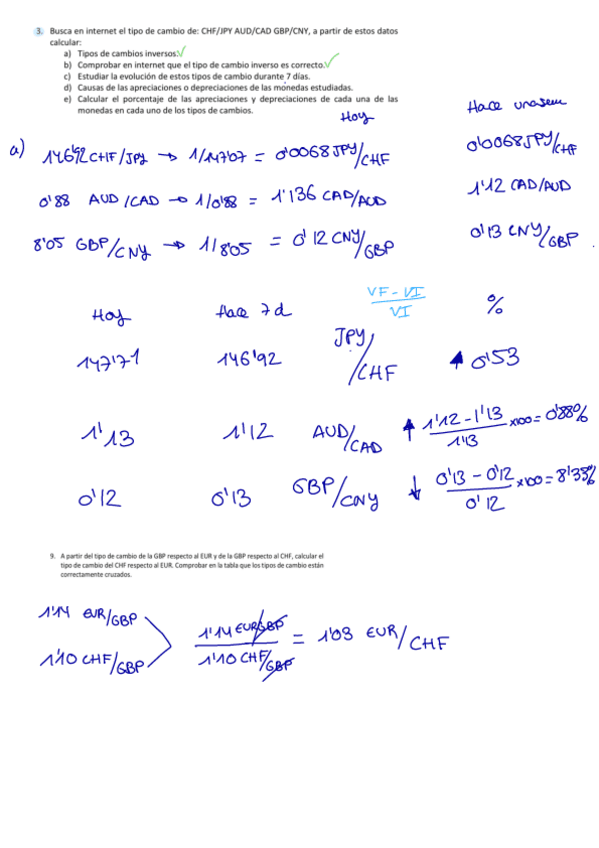 3. Busca en internet el tipo de cambio de: CHF/JPY AUD/CAD GBP/CNY, a partir de estos datos
calcular:
a) Tipos de cambios inversos.
b) Comprobar en internet que el tipo de cambio inverso es correcto.
c) Estudiar la evolución de estos tipos de cambio durante 7 días.
d) Causas de las apreciaciones o depreciaciones de las monedas estudiadas.
e) Calcular el porcentaje de las apreciaciones y depreciaciones de cada una de las
monedas en cada uno de los tipos de cambios.
Hoy Hace una sem
a) 146'92 CHF/JPY → 1/147'07 = 0'0068 JPY/CHF 0'0068 JPY/CHF
0'88 AUD/CAD → 1/0'88 = 1'136 CAD/AUD 1'12 CAD/AUD
8'05 GBP/CNY → 1/8'05 = 0'12 CNY/GBP 0'13 CNY/GBP
Hoy Hace 7d VF-VI/VI %
147'71 146'92 JPY/CHF ↑ 0'53
1'13 1'12 AUD/CAD ↑ 1'12-1'13/1'13 x100 = 0'88%
0'12 0'13 GBP/CNY ↓ 0'13-0'12/0'12 x100 = 8'33%
9. A partir del tipo de cambio de la GBP respecto al EUR y de la GBP respecto al CHF, calcular el
tipo de cambio del CHF respecto al EUR. Comprobar en la tabla que los tipos de cambio están
correctamente cruzados.
1'14 EUR/GBP
1'10 CHF/GBP
1'14 EUR/GBP / 1'10 CHF/GBP = 1'03 EUR/CHF